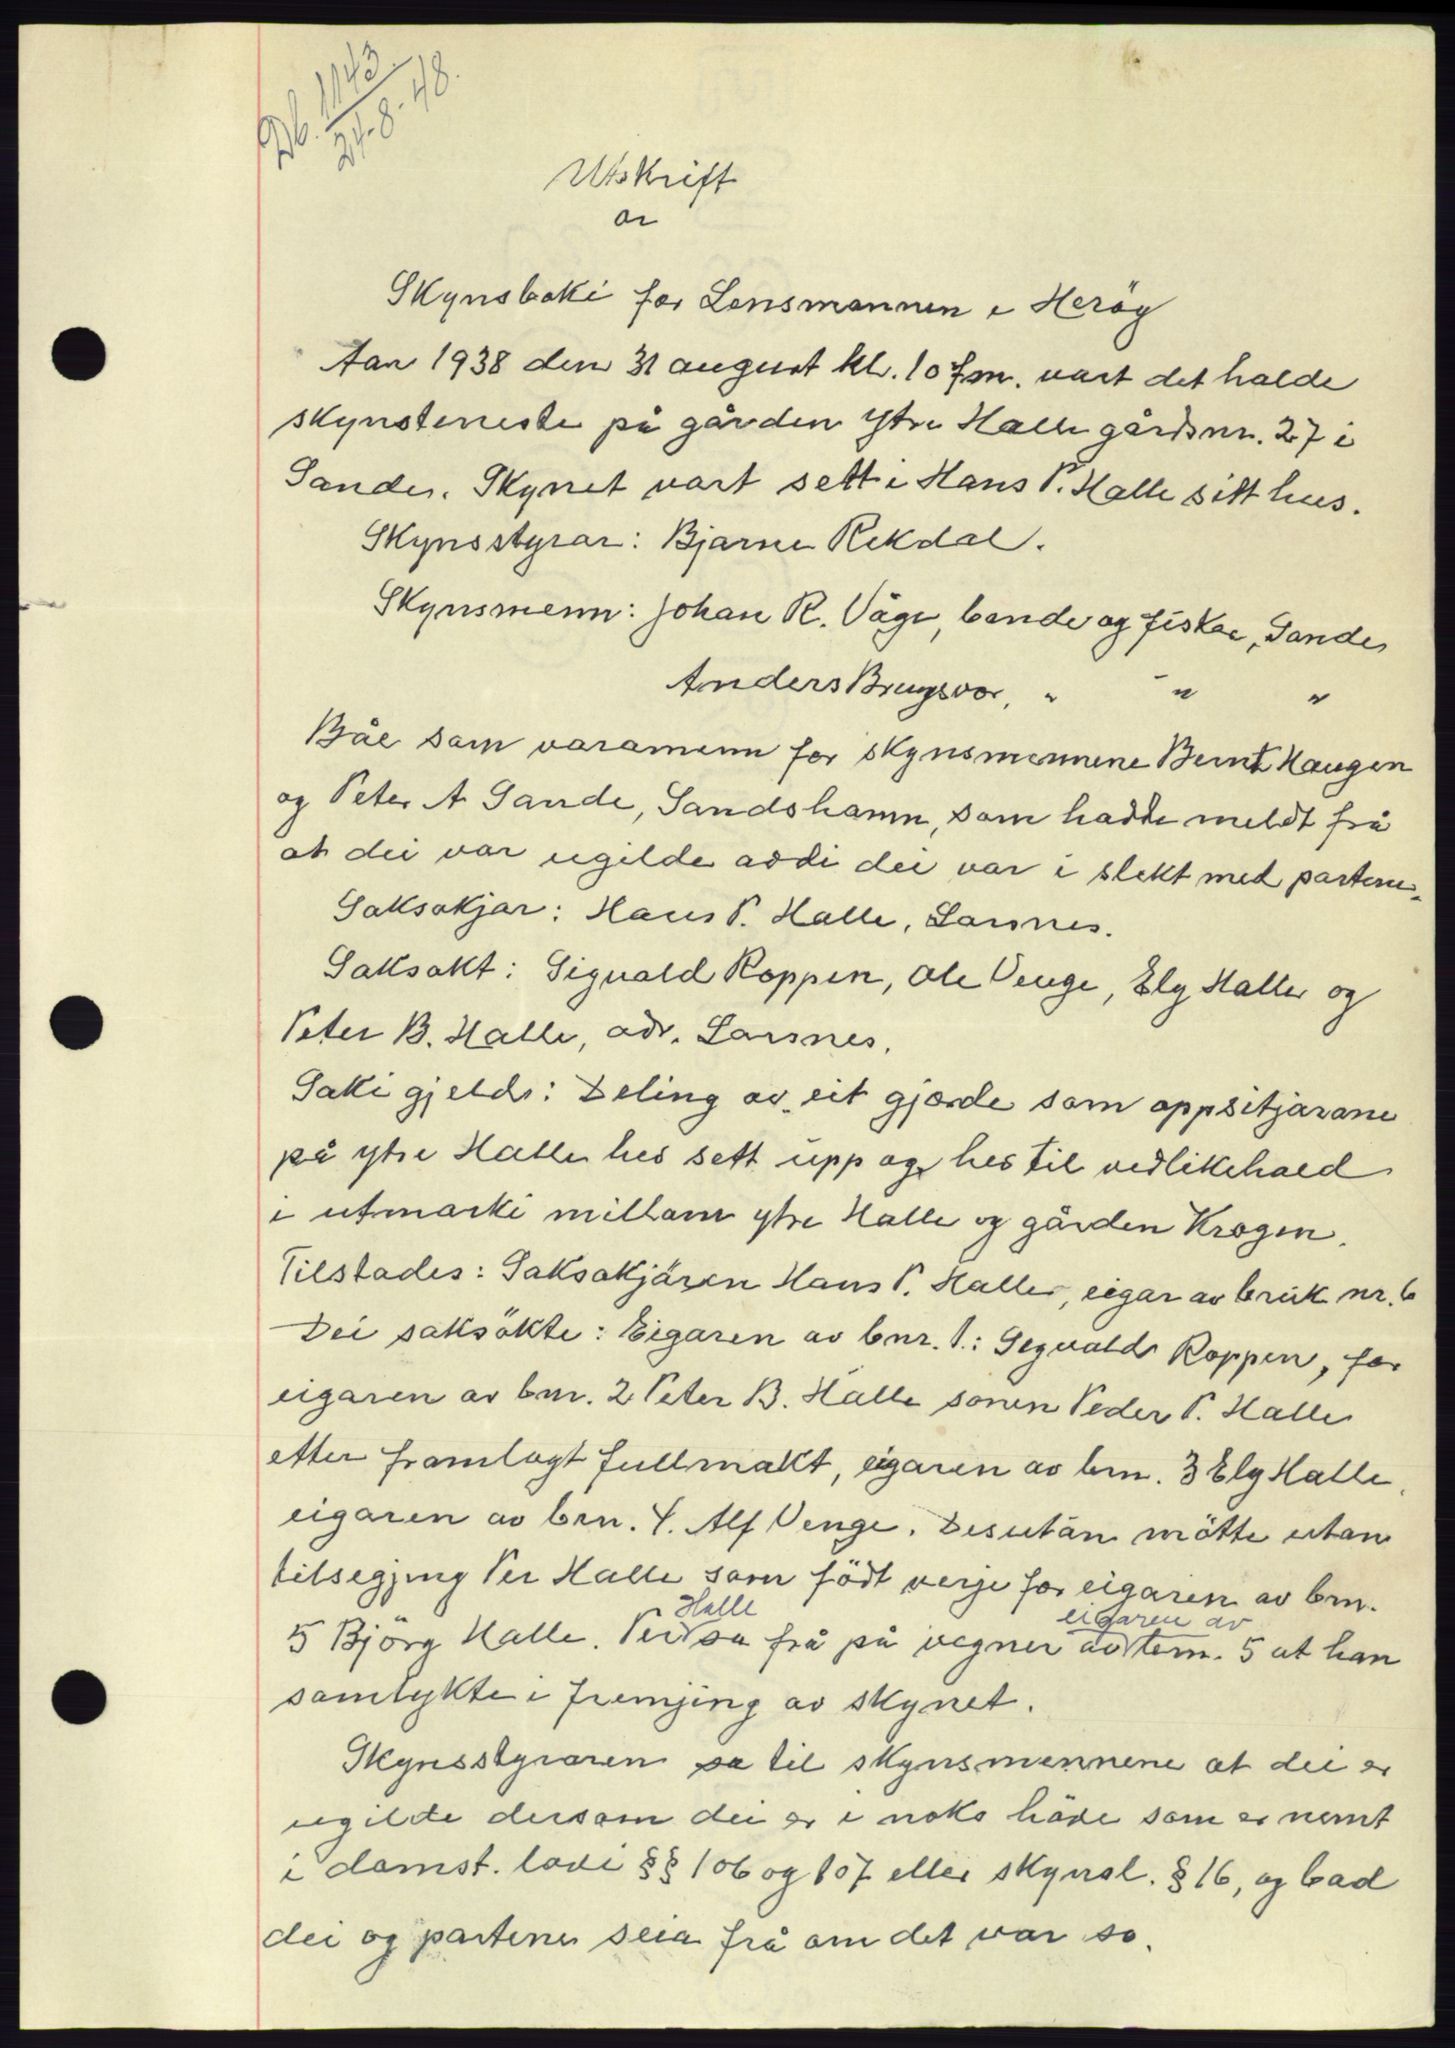 Db. 1143.
24-8-48.
Utskrift
or
Skynsboki for Lensmannen i Heröy
Aar 1938 den 31 august kl. 10 fm. vart det halde
skynsteneste på gården Ytre Halle gårdsnr. 27 i
Sande. Skynet vart sett i Hans P. Halle sitt hus.
Skynsstyrar: Bjarne Rekdal.
Skynsmenn: Johan R. Våge, bonde og fiskar, Sande
Anders Bringsvor, " " "
Båe som varamenn for skynsmennene Bernt Haugen
og Peter A Sande, Sandshamn, som hadde meldt frå
at dei var ugilde addi dei var i slekt med partene.
Saksøkjar: Hans P. Halle, Larsnes.
Saksøkt: Sigvald Roppen, Ole Venge, Ely Halle og
Peter B. Halle, adr. Larsnes.
Saki gjeld: Deling av eit gjærde som oppsitjarane
på ytre Halle hes sett upp og hes til vedlikehald
i utmarki millom ytre Halle og gården Krogen.
Tilstades: Saksøkjären Hans P. Halle, eigar av bruk nr. 6
Dei saksökte: Eigaren av bnr. 1.: Segvald Roppen, for
eigaren av bnr. 2 Peter B. Halle sonen Peder P. Halle
etter framlagt fullmakt, eigaren av brn. 3 Ely Halle,
eigaren av brn. 4. Alf Venge. Desutan mötte utan
tilsegjing Per Halle som födt verje for eigaren av brn.
5 Björg Halle. Per Halle sa frå på vegner av eigaren av brn. 5 at han
samtykte i fremjing av skynet.
Skynsstyraren sa til skynsmennene at dei er
ugilde dersom dei er i noko höve som er nemt
i domst. lovi §§ 106 og 107 eller skynsl. § 16, og bad
dei og partene seia frå om det var so.